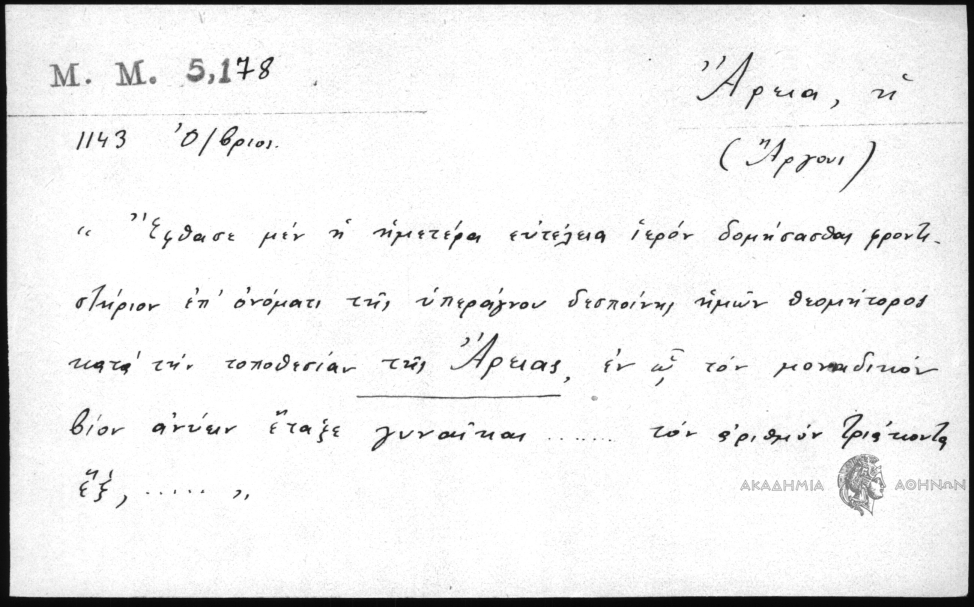 Μ. Μ. 5,178
Ἄρεια, ἡ
1143 Ὀ/βριος.
(Ἄργους)
“ Ἔφθασε μέν ἡ ἡμετέρα εὐτέλεια ἱερόν δομήσασθαι φροντι-
στήριον ἐπ' ὀνόματι τῆς ὑπεράγνου δεσποίνης ἡμῶν θεομήτορος
κατά τήν τοποθεσίαν τῆς Ἄρειας, ἐν ᾧ τόν μοναδικόν
βίον ἀνύειν ἔταξε γυναῖκας ...... τόν ἀριθμόν τριάκοντα
ἕξ, ..... „
ΑΚΑΔΗΜΙΑ ΑΘΗΝΩΝ